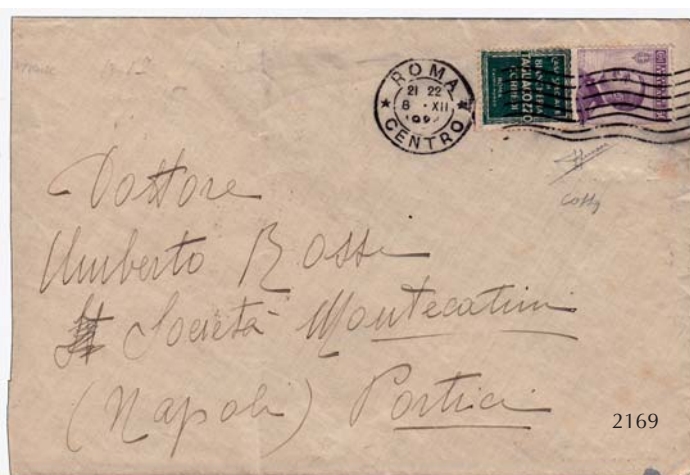 ROMA
21 22
8 · XII
CENTRO
TAGLIACOZZO
ROMA
Dottore
Umberto Rossi
Società Montecatini
(Napoli) Portici
2169